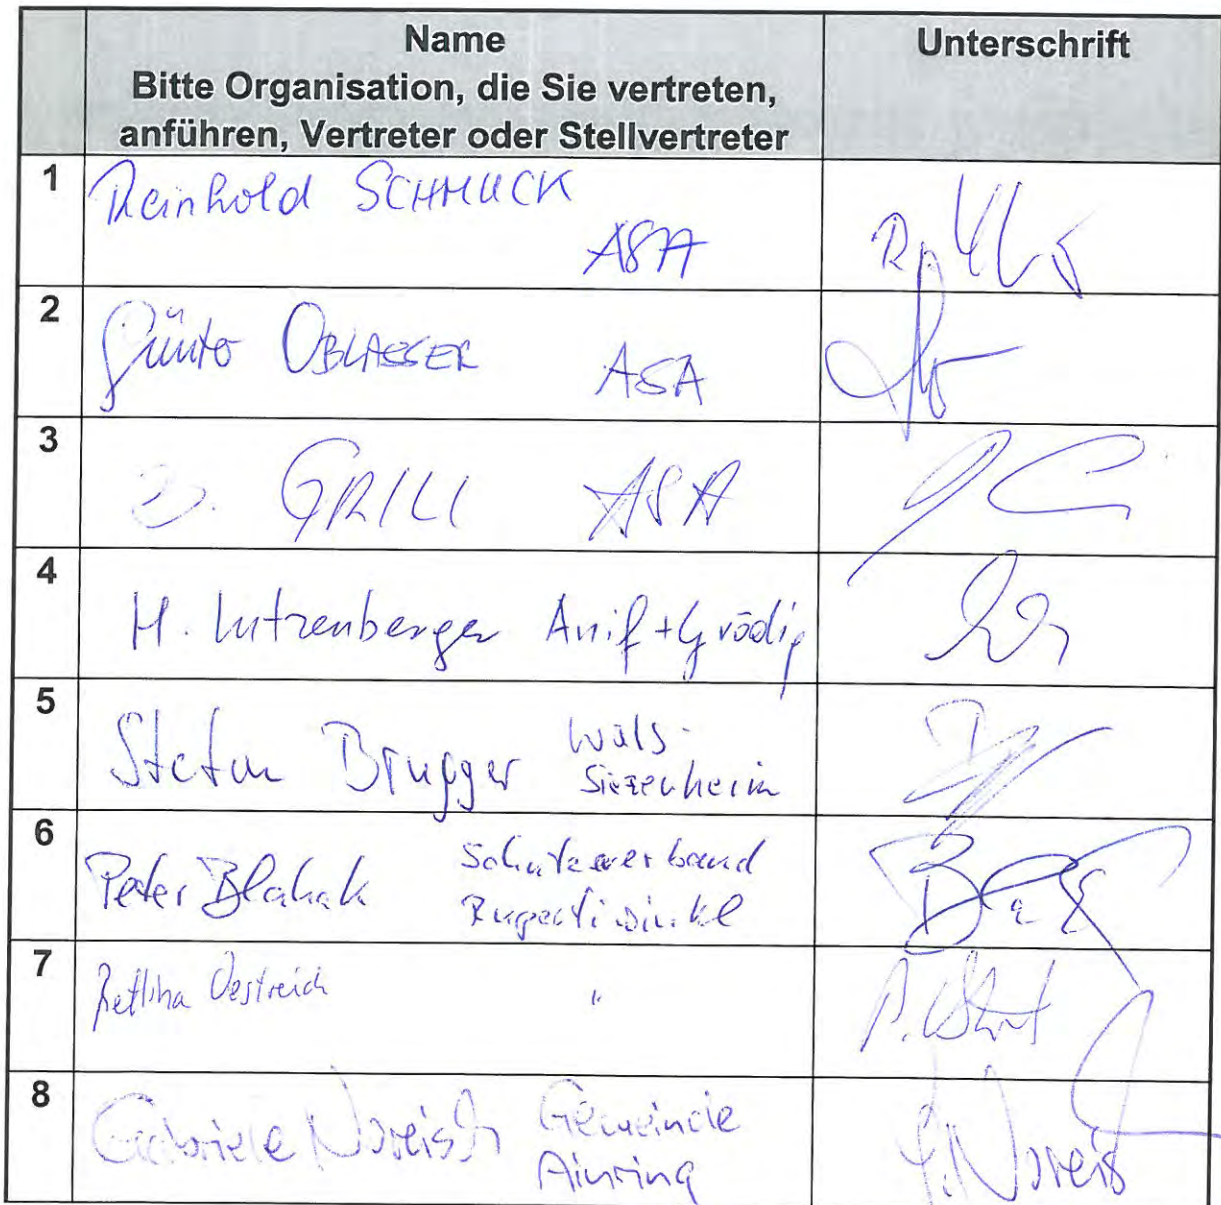 Name
Bitte Organisation, die Sie vertreten,
anführen, Vertreter oder Stellvertreter
Unterschrift
1
Reinhold SCHMUCK
ASA
2
Günter OBLASSER ASA
3
GRILL ASA
4
H. Lutzenberger Anif + Grödig
5
Stefan Brugger Wals-
Siezenheim
6
Peter Blahak Schutzverband
Rupertiwinkel
7
Bettina Oestreich "
8
Gabriele Noreisch Gemeinde
Ainring